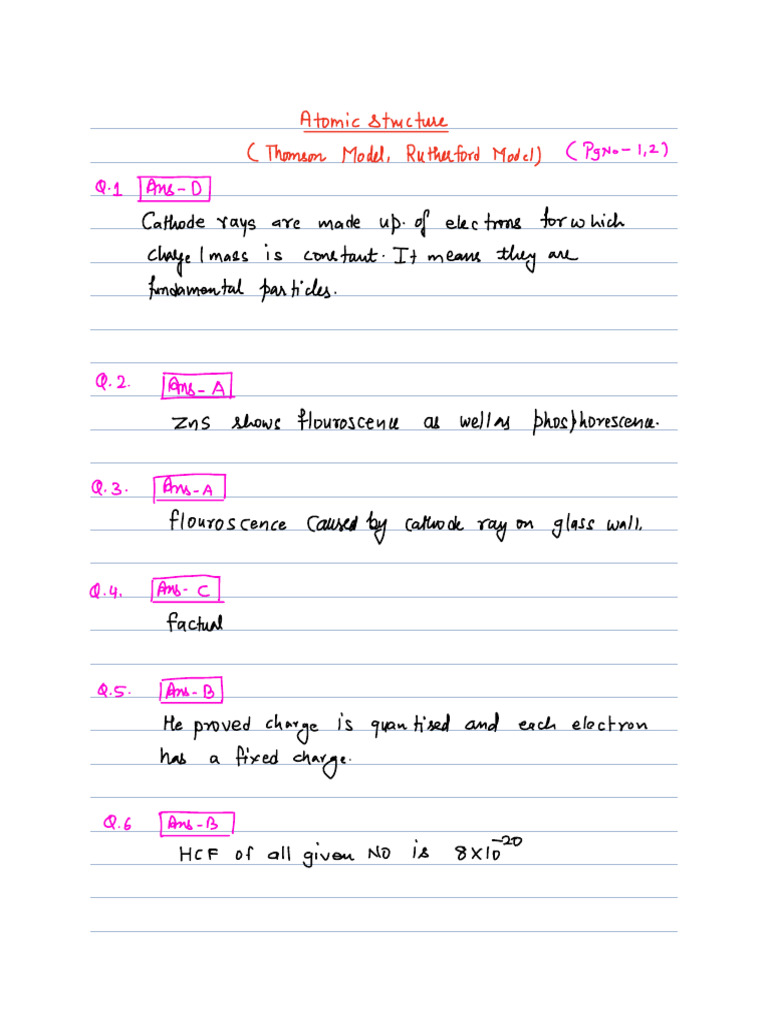 Atomic structure
(Thomson Model, Rutherford Model) (Pg No - 1,2)
Q.1 Ans-D
Cathode rays are made up. of electrons for which
charge/mass is constant. It means they are
fundamental particles.
Q.2. Ans-A
ZnS shows flouroscence as well as phosphorescence.
Q.3. Ans-A
flouroscence caused by cathode ray on glass wall.
Q.4. Ans-C
factual
Q.5. Ans-B
He proved charge is quantised and each electron
has a fixed charge.
Q.6 Ans-B
HCF of all given NO is 8X10⁻²⁰